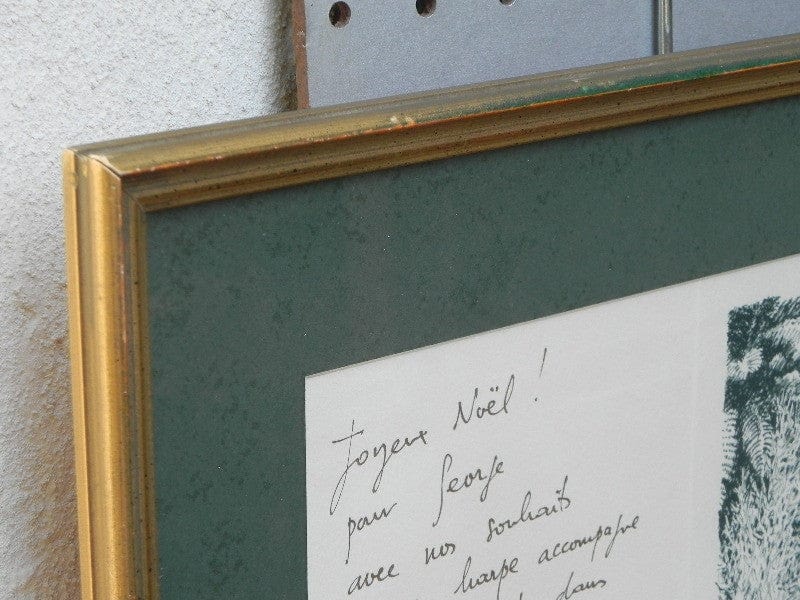 Joyeux Noël !
pour George
avec nos souhaits
harpe accompagne
dans